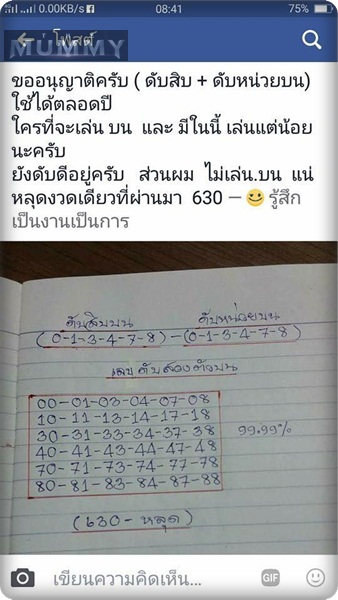 0.00KB/s 08:41 75%
MUMMY
โพสต์
ขออนุญาติครับ ( ดับสิบ + ดับหน่วยบน)
ใช้ได้ตลอดปี
ใครที่จะเล่น บน และ มีในนี้ เล่นแต่น้อย
นะครับ
ยังดับดีอยู่ครับ ส่วนผม ไม่เล่น.บน แน่
หลุดงวดเดียวที่ผ่านมา 630 — รู้สึก
เป็นงานเป็นการ
ดับสิบบน ดับหน่วยบน
(0-1-3-4-7-8)-(0-1-3-4-7-8)
เลขดับสองตัวบน
00-01-03-04-07-08
10-11-13-14-17-18
30-31-33-34-37-38
99.99%
40-41-43-44-47-48
70-71-73-74-77-78
80-81-83-84-87-88
(630-หลุด)
เขียนความคิดเห็น... GIF